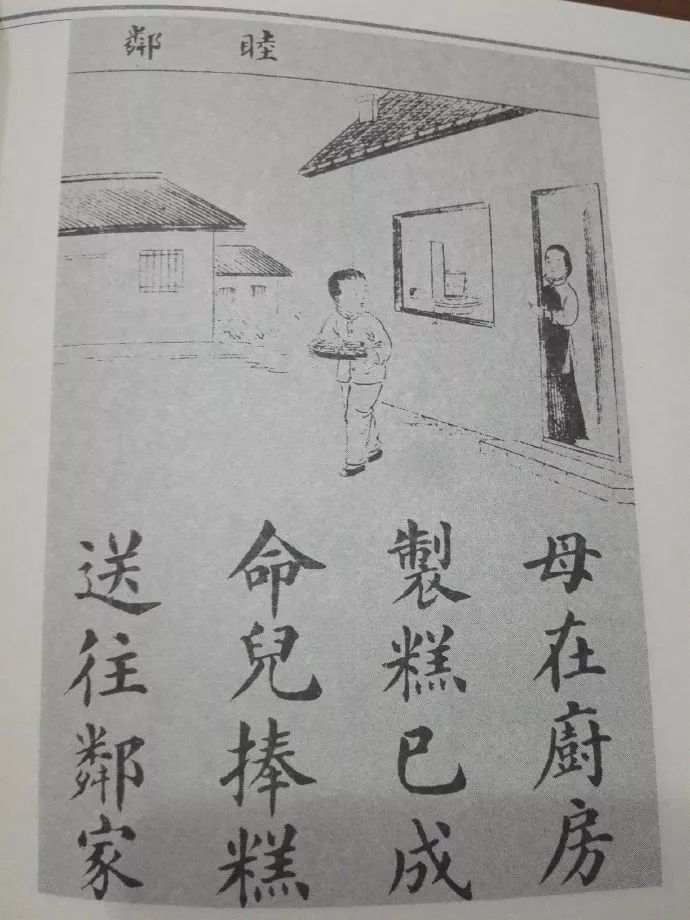 睦鄰
母在廚房
製糕已成
命兒捧糕
送往鄰家